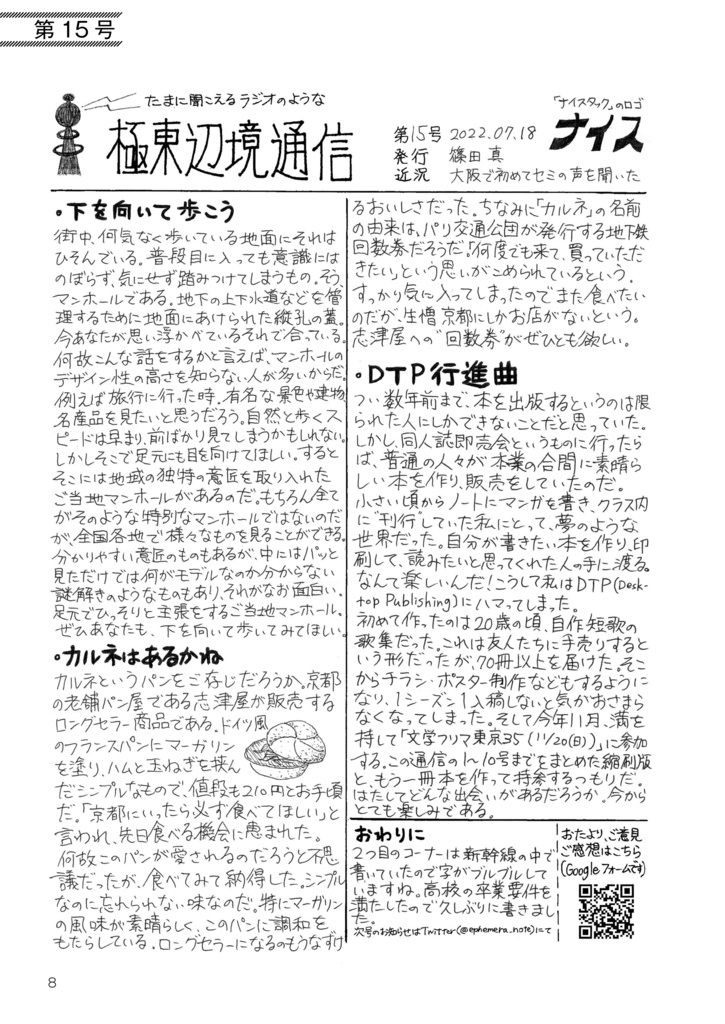 第15号
たまに聞こえるラジオのような
極東辺境通信
「ナイスタック」のロゴ
ナイス
第15号 2022.07.18
発行 篠田 真
近況 大阪で初めてセミの声を聞いた
・下を向いて歩こう
街中、何気なく歩いている地面にそれは
ひそんでいる。普段目に入っても意識には
のぼらず、気にせず踏みつけてしまうもの。そう、
マンホールである。地下の上下水道などを管
理するために地面にあけられた縦孔の蓋。
今あなたが思い浮かべているそれで合っている。
何故こんな話をするかと言えば、マンホールの
デザイン性の高さを知らない人が多いからだ。
例えば旅行に行った時、有名な景色や建物、
名産品を見たいと思うだろう。自然と歩くス
ピードは早まり、前ばかり見てしまうかもしれない。
しかしそこで足元にも目を向けてほしい。すると
そこには地域の独特の意匠を取り入れた
ご当地マンホールがあるのだ。もちろん全て
がそのような特別なマンホールではないのだ
が、全国各地で様々なものを見ることができる。
分かりやすい意匠のものもあるが、中にはパッと
見ただけでは何がモデルなのか分からない
謎解きのようなものもあり、それがなお面白い。
足元でひっそりと主張をするご当地マンホール。
ぜひあなたも、下を向いて歩いてみてほしい。
・カルネはあるかね
カルネというパンをご存じだろうか。京都
の老舗パン屋である志津屋が販売する
ロングセラー商品である。ドイツ風
のフランスパンにマーガリン
を塗り、ハムと玉ねぎを挟ん
だシンプルなもので、値段も210円とお手頃
だ。「京都にいったら必ず食べてほしい」と
言われ、先日食べる機会に恵まれた。
何故このパンが愛されるのだろうと不思
議だったが、食べてみて納得した。シンプル
なのに忘れられない味なのだ。特にマーガリン
の風味が素晴らしく、このパンに調和を
もたらしている。ロングセラーになるのもうなずけ
るおいしさだった。ちなみに「カルネ」の名前
の由来は、パリ交通公団が発行する地下鉄
回数券だそうだ。「何度でも来て、買っていただ
きたい」という思いがこめられているという。
すっかり気に入ってしまったのでまた食べたい
のだが、生憎京都にしかお店がないという。
志津屋への“回数券”がぜひとも欲しい。
・DTP行進曲
つい数年前まで、本を出版するというのは限
られた人にしかできないことだと思っていた。
しかし、同人誌即売会というものに行ったら
ば、普通の人々が本業の合間に素晴ら
しい本を作り、販売をしていたのだ。
小さい頃からノートにマンガを書き、クラス内
に“刊行”していた私にとって、夢のような
世界だった。自分が書きたい本を作り、印
刷して、読みたいと思ってくれた人の手に渡る。
なんて楽しいんだ！こうして私はDTP(Desk-
top Publishing)にハマってしまった。
初めて作ったのは20歳の頃、自作短歌の
歌集だった。これは友人たちに手売りすると
いう形だったが、70冊以上を届けた。そこ
からチラシ・ポスター制作などもするように
なり、1シーズン1入稿しないと気がおさまら
なくなってしまった。そして今年11月、満を
持して「文学フリマ東京35(11/20(日))」に参加
する。この通信の1〜10号までをまとめた縮刷版
と、もう一冊本を作って持参するつもりだ。
はたしてどんな出会いがあるだろうか。今から
とても楽しみである。
おわりに
2つ目のコーナーは新幹線の中で
書いていたので字がブルブルして
いますね。高校の卒業要件を
満たしたので久しぶりに書きまし
た。
次号のお知らせはTwitter(@ephemera_note)にて
おたより、ご意見
ご感想はこちら
(Googleフォームです)
8